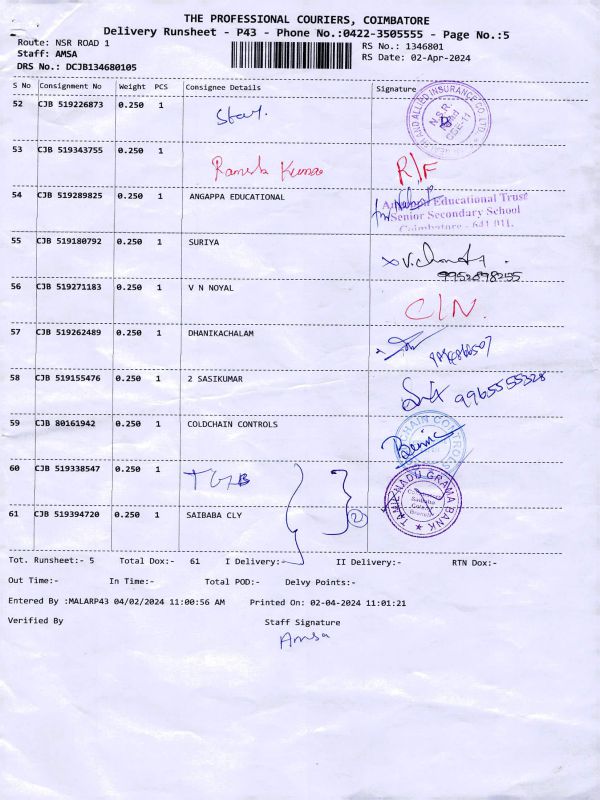 THE PROFESSIONAL COURIERS, COIMBATORE
Delivery Runsheet - P43 - Phone No.:0422-3505555 - Page No.:5
Route: NSR ROAD 1
RS No.: 1346801
Staff: AMSA
RS Date: 02-Apr-2024
DRS No.: DCJB134680105
S No Consignment No Weight PCS Consignee Details Signature
52 CJB 519226873 0.250 1 Star.
AND ALLIED INSURANCE CO. LTD.
N.S.R. Road CBE-11
53 CJB 519343755 0.250 1 Ramesh Kumar R/F
54 CJB 519289825 0.250 1 ANGAPPA EDUCATIONAL
Educational Trust
Senior Secondary School
Coimbatore - 641 011.
55 CJB 519180792 0.250 1 SURIYA
9952898255
56 CJB 519271183 0.250 1 V N NOYAL C/N.
57 CJB 519262489 0.250 1 DHANIKACHALAM
58 CJB 519155476 0.250 1 2 SASIKUMAR 9965555328
59 CJB 80161942 0.250 1 COLDCHAIN CONTROLS
CHAIN CONTROLS
60 CJB 519338547 0.250 1 TGB
TAMIL NADU GRAMA BANK
61 CJB 519394720 0.250 1 SAIBABA CLY 2
Tot. Runsheet:- 5 Total Dox:- 61 I Delivery:- II Delivery:- RTN Dox:-
Out Time:- In Time:- Total POD:- Delvy Points:-
Entered By :MALARP43 04/02/2024 11:00:56 AM Printed On: 02-04-2024 11:01:21
Verified By Staff Signature
Amsa